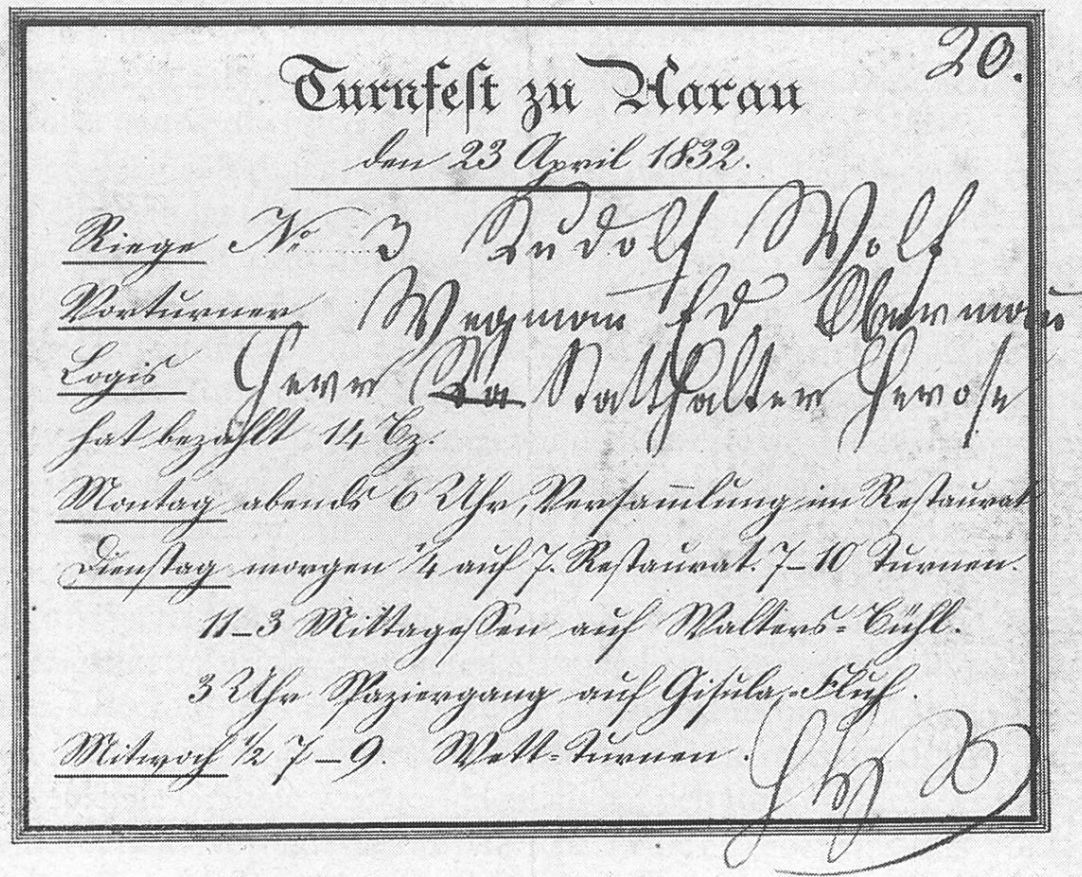 20.
Turnfest zu Aarau
den 23 April 1832.
Riege No 3 Rudolf Wolf
Vorturner Wegman Ed Oberman
Logis Herr Statthalter Herose
hat bezahlt 14 Bz.
Montag abends 6 Uhr, Versam̄lung im Restaurat
Dienstag morgen ¼ auf 7. Restaurat. 7–10 Turnen.
11–3 Mittagessen auf Walters-Bühl.
3 Uhr Spaziergang auf Gisula-Fluh.
Mitwoch ½ 7–9. Wett-Turnen.